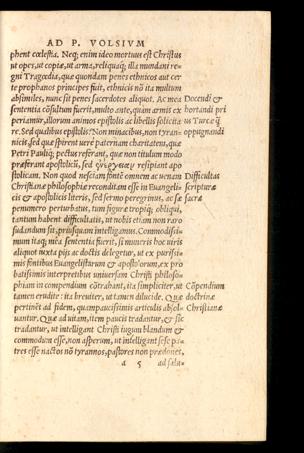 AD P. VOLSIVM
phent cœlestia. Neq; enim ideo mortuus est Christus
ut opes, ut copiæ, ut arma, reliquaq; illa mundani re-
gni Tragœdia, quæ quondam penes ethnicos aut cer
te prophanos principes fuit, ethnicis nõ ita multum
absimiles, nunc sit penes sacerdotes aliquot. Ac mea
sententia cõsultum fuerit, multo ante, quàm armis ex
periamur, illorum animos epistolis ac libellis solicita
re. Sed qualibus epistolis? Non minacibus, non tyran-
nicis, sed quæ spirent uerè paternam charitatem, quæ
Petri Pauliq; pectus referant, quæ non titulum modo
præferant apostolicũ, sed ἐνέργειαν resipiant apo
stolicam. Non quod nesciam fontẽ omnem ac uenam
Christianæ philosophiæ reconditam esse in Euangeli-
cis & apostolicis literis, sed sermo peregrinus, ac sæ
penumero perturbatus, tum figuræ tropiq; obliqui,
tantum habent difficultatis, ut nobis etiam non raro
sudandum sit, priusquam intelligamus. Commodissi-
mum itaq; mea sententia fuerit, si muneris hoc uiris
aliquot iuxta pijs ac doctis delegetur, ut ex purissi-
mis fontibus Euangelistarum & apostolorum, ex pro
batissimis interpretibus uniuersam Christi philoso-
phiam in compendium cõtrahant, ita simpliciter, ut
tamen erudite: ita breuiter, ut tamen dilucide. Quæ
pertinẽt ad fidem, quàm paucissimis articulis absol-
uantur. Quæ ad uitam, item paucis tradantur, & sic
tradantur, ut intelligant Christi iugum blandum &
commodum esse, non asperum, ut intelligant sese pa-
tres esse nactos nõ tyrannos, pastores non prædones,
a 5 ad salu-
Docendi &
hortandi pri
us Turcæ q̃
oppugnandi
Difficultas
scripturæ
sacræ
Cõpendium
doctrinæ
Christianæ